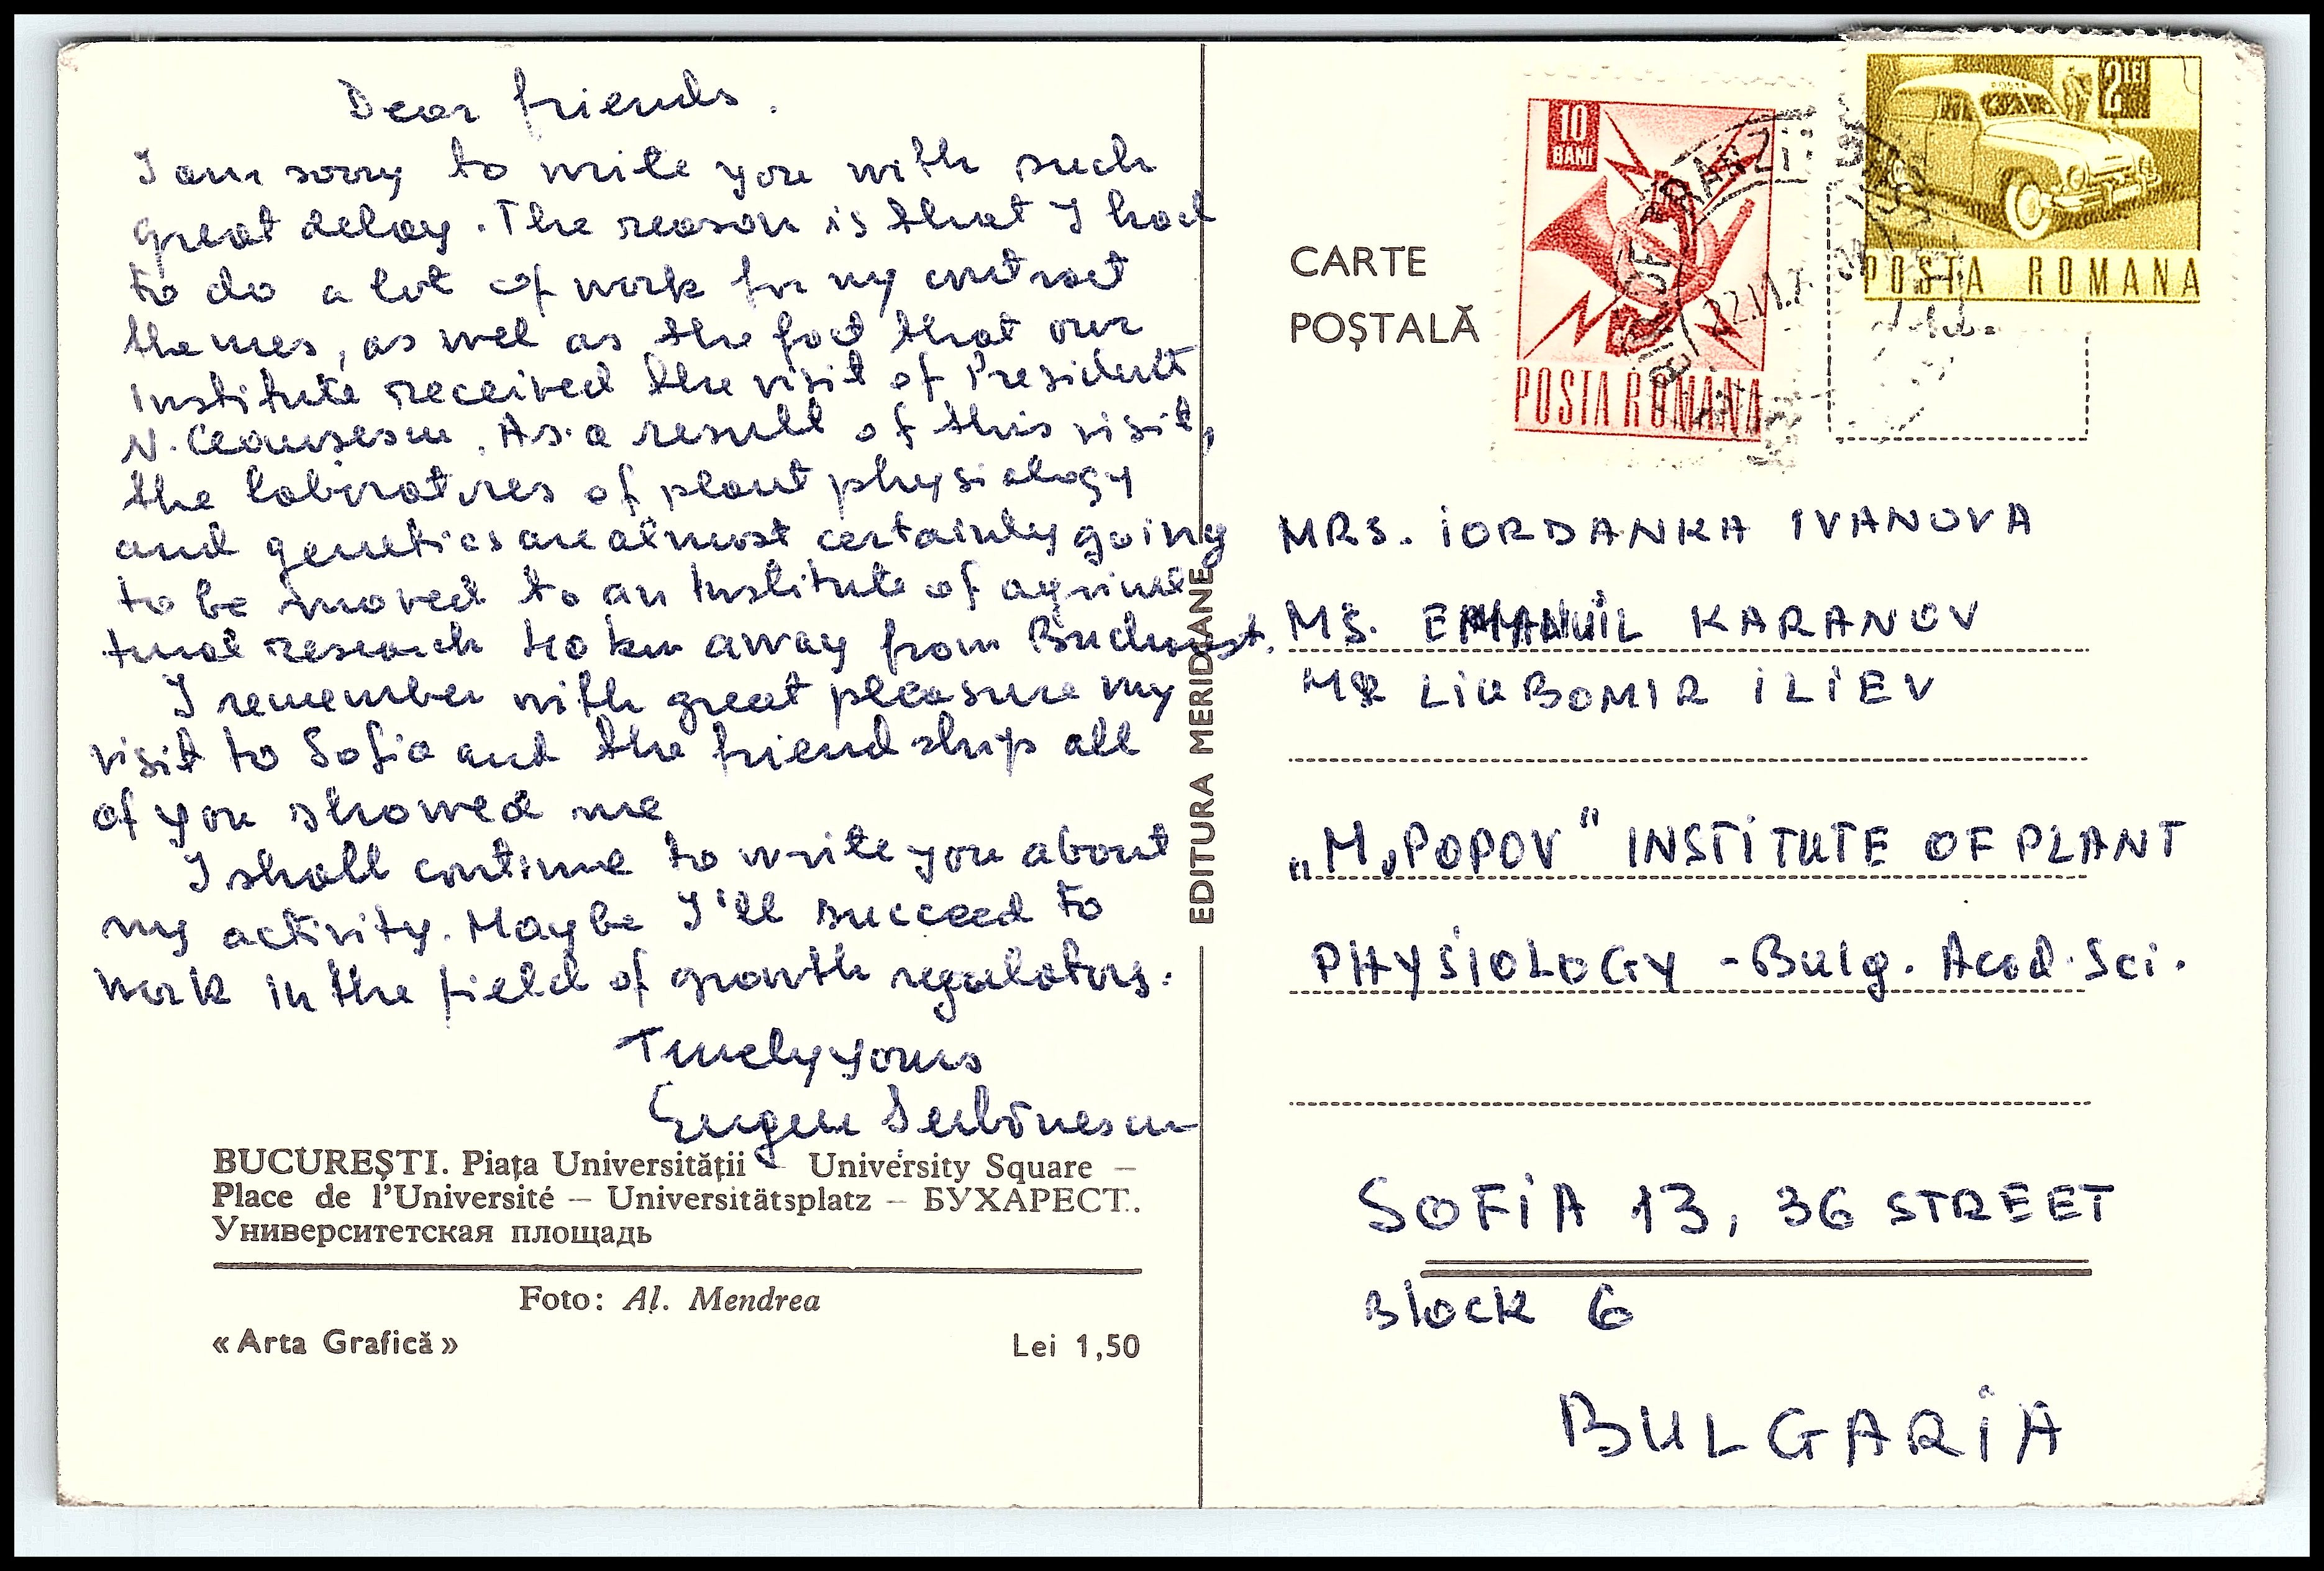 Dear friends.
I am sorry to write you with such
great delay. The reason is that I had
to do a lot of work for my contract
themes, as well as the fact that our
Institute received the visit of President
N. Ceausescu. As a result of this visit,
the laboratories of plant physiology
and genetics are almost certainly going
to be moved to an Institute of agricul
tural research 40 km away from Bucharest.
I remember with great pleasure my
visit to Sofia and the friendship all
of you showed me
I shall continue to write you about
my activity. Maybe I'll succeed to
work in the field of growth regulators.
Truely yours
Eugen Serbănescu
BUCUREŞTI. Piaţa Universităţii – University Square –
Place de l'Université – Universitätsplatz – БУХАРЕСТ.
Университетская площадь
Foto: Al. Mendrea
« Arta Grafică » Lei 1,50
EDITURA MERIDIANE
CARTE
POŞTALĂ
10
BANI
POSTA ROMANA
2 LEI
POSTA
POSTA ROMANA
MRS. IORDANKA IVANOVA
MS. EMANUIL KARANOV
MR LIUBOMIR ILIEV
„M. POPOV" INSTITUTE OF PLANT
PHYSIOLOGY - Bulg. Acad. Sci.
SOFIA 13, 36 STREET
Block 6
BULGARIA